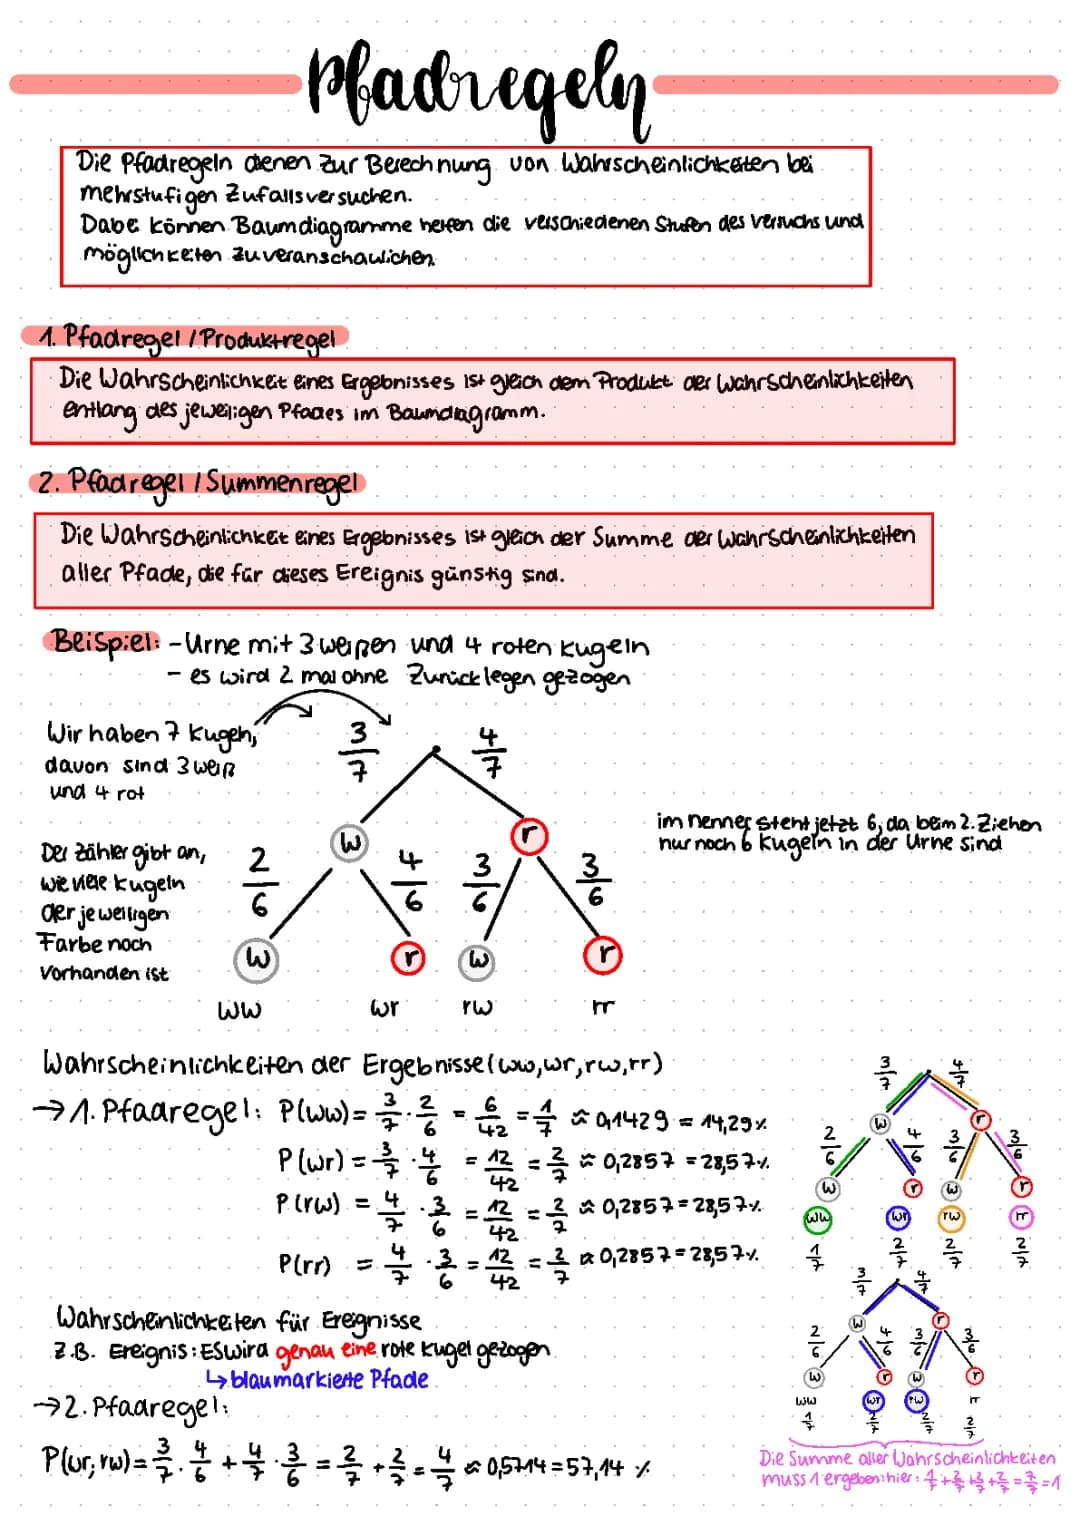 Pfadregeln
Die Pfadregeln dienen zur Berechnung von Wahrscheinlichkeiten bei
mehrstufigen Zufallsversuchen.
Dabei können Baumdiagramme helfen die verschiedenen Stufen des Versuchs und
möglichkeiten zu veranschaulichen
1. Pfadregel / Produktregel
Die Wahrscheinlichkeit eines Ergebnisses ist gleich dem Produkt der Wahrscheinlichkeiten
entlang des jeweiligen Pfades im Baumdiagramm.
2. Pfadregel / Summenregel
Die Wahrscheinlichkeit eines Ergebnisses ist gleich der Summe der Wahrscheinlichkeiten
aller Pfade, die für dieses Ereignis günstig sind.
Beispiel: - Urne mit 3 weißen und 4 roten Kugeln
- es wird 2 mal ohne Zurücklegen gezogen
Wir haben 7 Kugeln,
davon sind 3 weiß
und 4 rot
3/7 4/7
w r
im nenner steht jetzt 6, da beim 2. Ziehen
nur noch 6 Kugeln in der Urne sind
Der Zähler gibt an,
wie viele Kugeln
der jeweiligen
Farbe noch
vorhanden ist
2/6 4/6 3/6 3/6
w r w r
ww wr rw rr
Wahrscheinlichkeiten der Ergebnisse (ww, wr, rw, rr)
→ 1. Pfadregel: P(ww) = 3/7 · 2/6 = 6/42 = 1/7 ≈ 0,1429 = 14,29 %
P(wr) = 3/7 · 4/6 = 12/42 = 2/7 ≈ 0,2857 = 28,57 %
P(rw) = 4/7 · 3/6 = 12/42 = 2/7 ≈ 0,2857 = 28,57 %
P(rr) = 4/7 · 3/6 = 12/42 = 2/7 ≈ 0,2857 = 28,57 %
3/7 4/7
w r
2/6 4/6 3/6 3/6
w r w r
ww wr rw rr
1/7 2/7 2/7 2/7
Wahrscheinlichkeiten für Ereignisse
z.B. Ereignis: Es wird genau eine rote Kugel gezogen
↳ blau markierte Pfade
→ 2. Pfadregel:
P(wr; rw) = 3/7 · 4/6 + 4/7 · 3/6 = 2/7 + 2/7 = 4/7 ≈ 0,5714 = 57,14 %
3/7 4/7
w r
2/6 4/6 3/6 3/6
w r w r
ww wr rw rr
1/7 2/7 2/7 2/7
Die Summe aller Wahrscheinlichkeiten
muss 1 ergeben: hier: 1/7 + 2/7 + 2/7 + 2/7 = 7/7 = 1